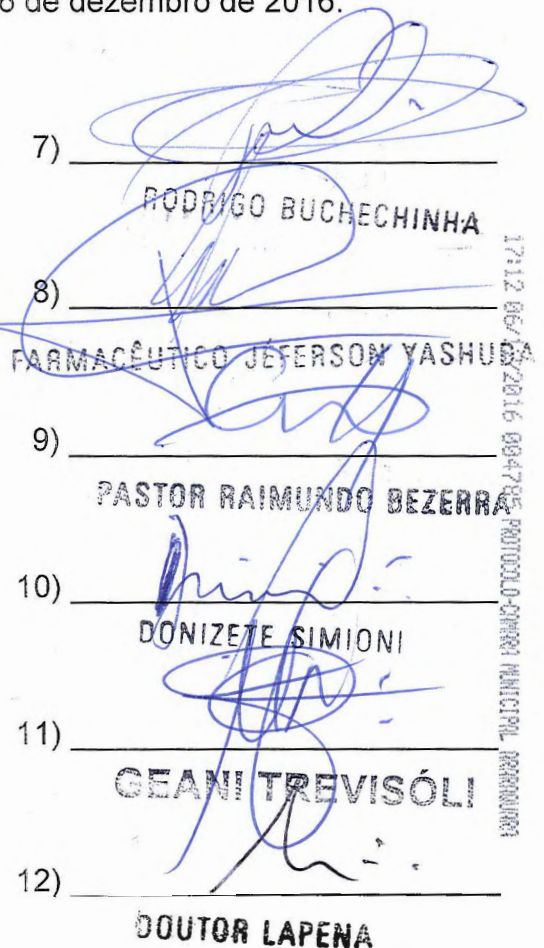 6 de dezembro de 2016.
7)
RODRIGO BUCHECHINHA
8)
FARMACÊUTICO JÉFERSON YASHUDA
9)
PASTOR RAIMUNDO BEZERRA
10)
DONIZETE SIMIONI
11)
GEANI TREVISÓLI
12)
DOUTOR LAPENA
17:12 06/12/2016 004785 PROTOCOLO-CAMARA MUNICIPAL ARARAQUARA